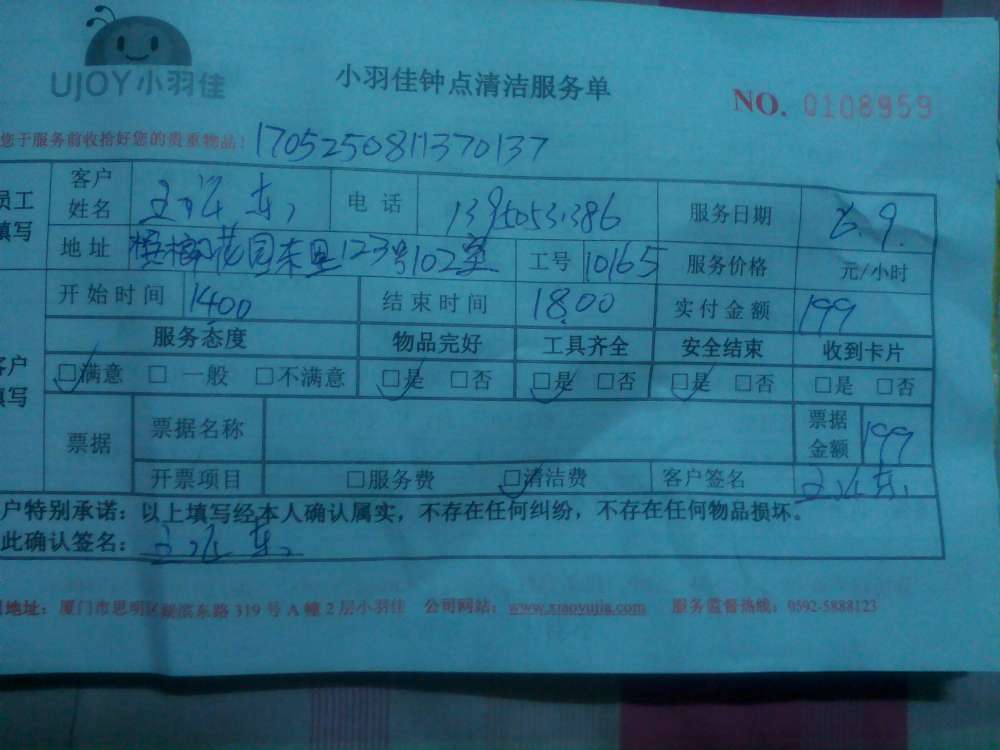 UJOY小羽佳
小羽佳钟点清洁服务单
NO. 0108959
您于服务前收拾好您的贵重物品! 1705250811370137
员工填写
客户姓名 电话 服务日期 6.9.
地址 花园东里123号102室 工号 10165 服务价格 元/小时
开始时间 1400 结束时间 18.00 实付金额 199
客户填写
服务态度 物品完好 工具齐全 安全结束 收到卡片
□满意 □一般 □不满意 □是 □否 □是 □否 □是 □否 □是 □否
票据 票据名称 票据金额 199
开票项目 □服务费 □清洁费 客户签名
户特别承诺：以上填写经本人确认属实，不存在任何纠纷，不存在任何物品损坏。
此确认签名：
地址：厦门市思明区湖滨东路 319 号 A 幢 2 层小羽佳 公司网站：www.xiaoyujia.com 服务监督热线：0592-5888123